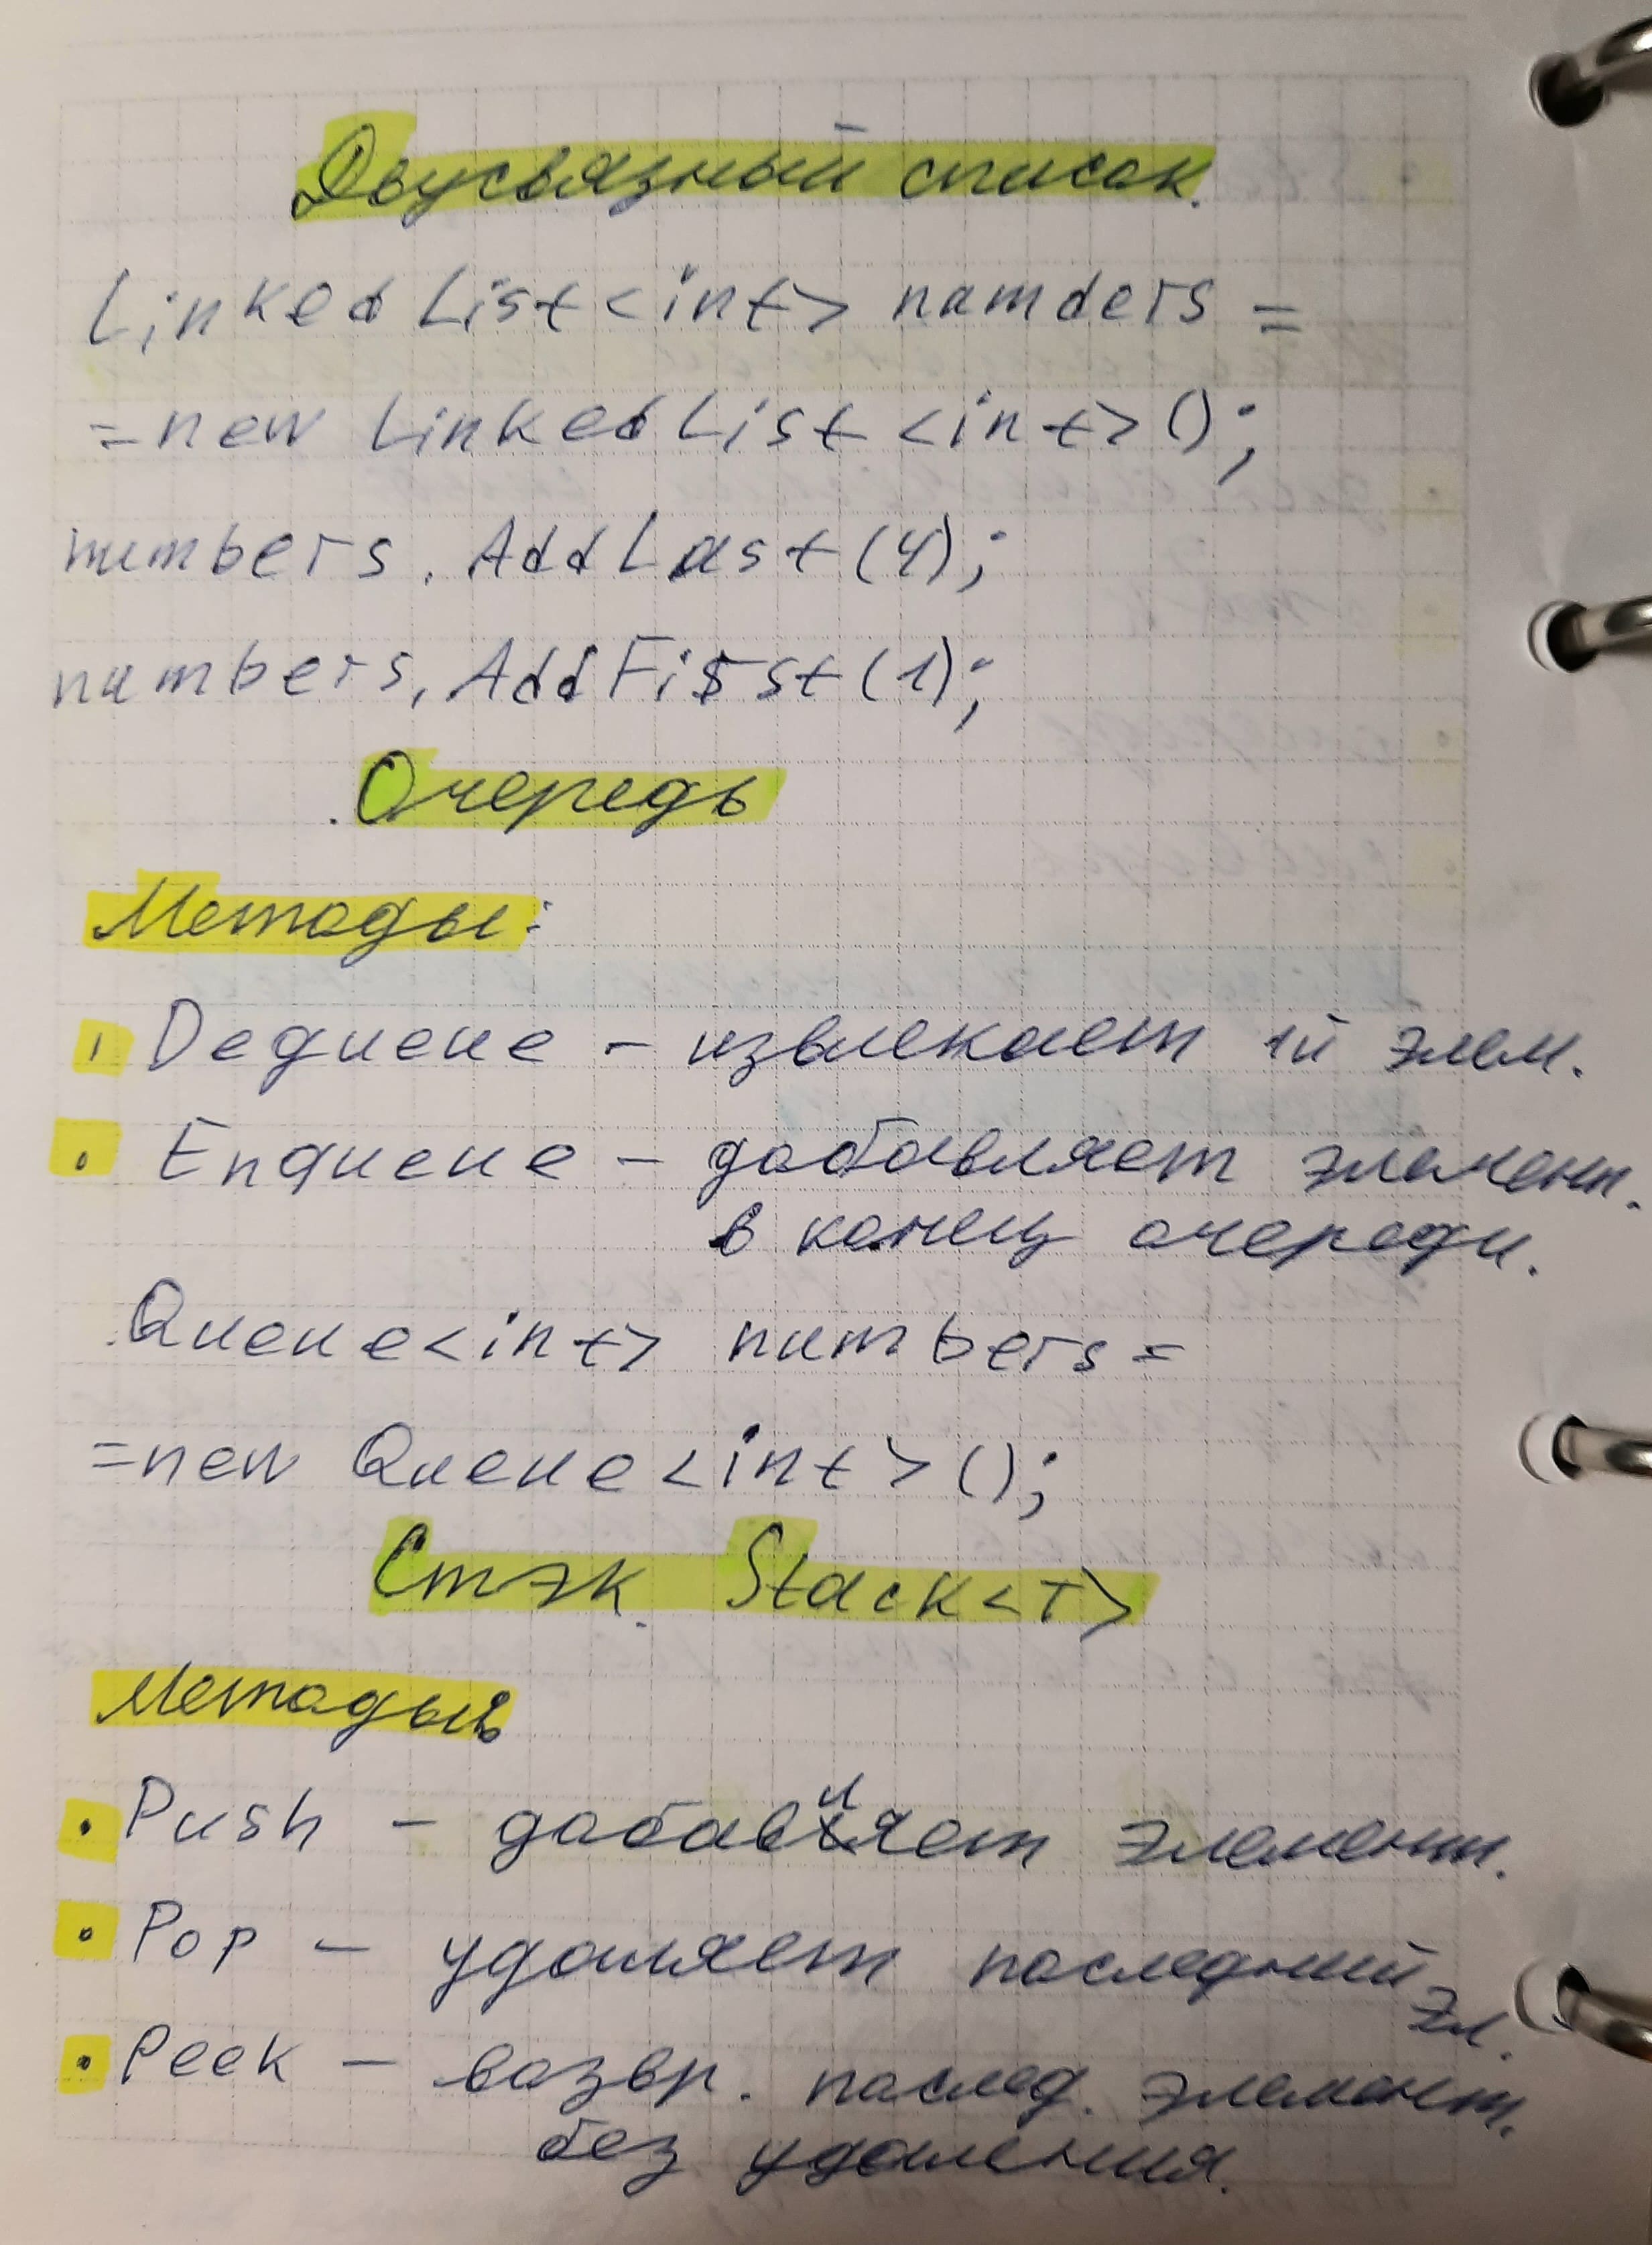 Двусвязный список.
LinkedList<int> namders =
=new LinkedList<int>();
numbers. AddLast(4);
numbers. AddFirst(1);
Очередь
Методы:
Dequeue - извлекает 1й элем.
Enqueue - добавляет элемент.
в конец очереди.
Queue<int> numbers =
=new Queue<int>();
Стэк. Stack<T>
Методы:
Push - добавляет элемент.
Pop - удаляет последний
эл.
Peek - возвр. послед. элемент.
без удаления.